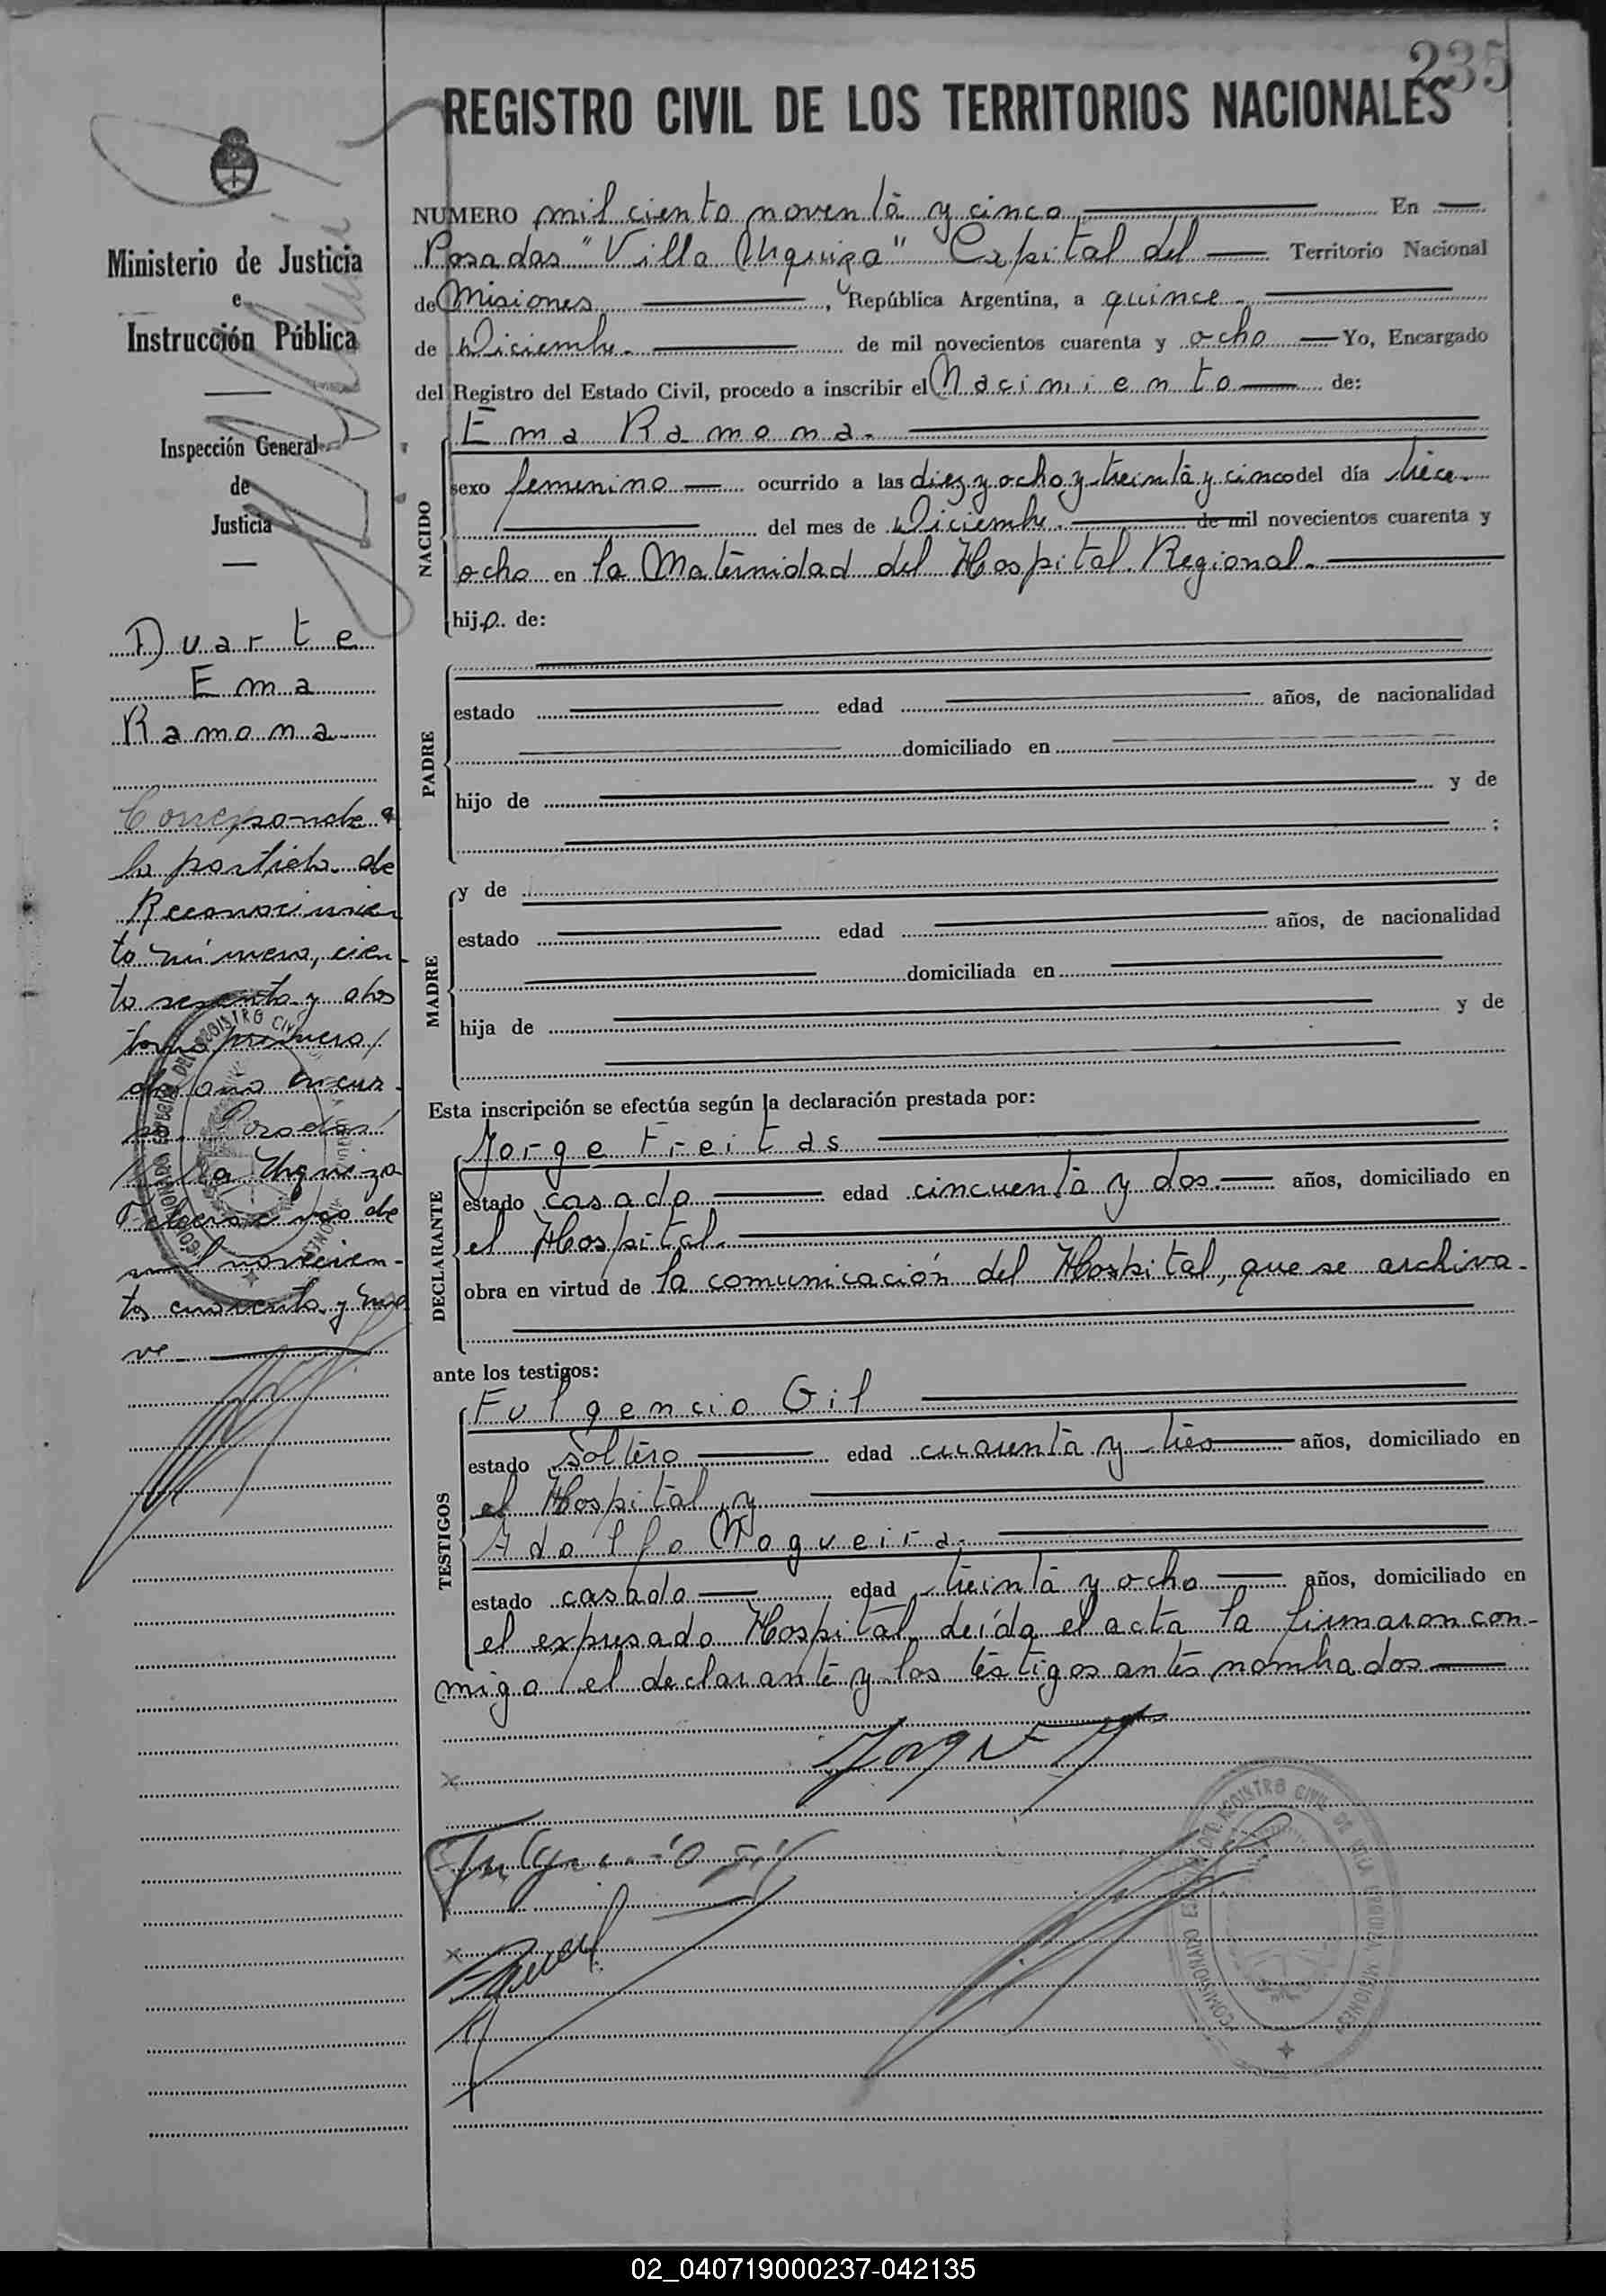 235
REGISTRO CIVIL DE LOS TERRITORIOS NACIONALES
Ministerio de Justicia
e
Instrucción Pública
Inspección General
de
Justicia
Duarte
Ema
Ramona
Corresponde a
la partida de
Reconocimien
to número, cien-
to sesenta y dos
tomo primero,
del año en cur-
so. Posadas
Villa Urquiza
Febrero de
mil novecien-
tos cuarenta y nue
ve
NUMERO mil ciento noventa y cinco En
Posadas "Villa Urquiza" Capital del Territorio Nacional
de Misiones, República Argentina, a quince
de Diciembre. de mil novecientos cuarenta y ocho Yo, Encargado
del Registro del Estado Civil, procedo a inscribir el Nacimiento de:
NACIDO
Ema Ramona.
sexo femenino ocurrido a las diez y ocho y treinta y cinco del día trece
del mes de Diciembre. de mil novecientos cuarenta y
ocho en la Maternidad del Hospital Regional.
hij.. de:
PADRE
estado edad años, de nacionalidad
domiciliado en
hijo de y de
;
MADRE
y de
estado edad años, de nacionalidad
domiciliada en
hija de y de
Esta inscripción se efectúa según la declaración prestada por:
DECLARANTE
Jorge Freitas
estado casado edad cincuenta y dos. años, domiciliado en
el Hospital.
obra en virtud de la comunicación del Hospital, que se archiva.
ante los testigos:
TESTIGOS
Fulgencio Gil
estado soltero edad cuarenta y tres años, domiciliado en
el Hospital y
Adolfo Nogueira.
estado casado edad treinta y ocho años, domiciliado en
el expresado Hospital. Leída el acta la firmaron con-
migo el declarante y los testigos antes nombrados
COMISIONADO DEL REGISTRO CIVIL DE VILLA URQUIZA MISIONES
02_040719000237-042135